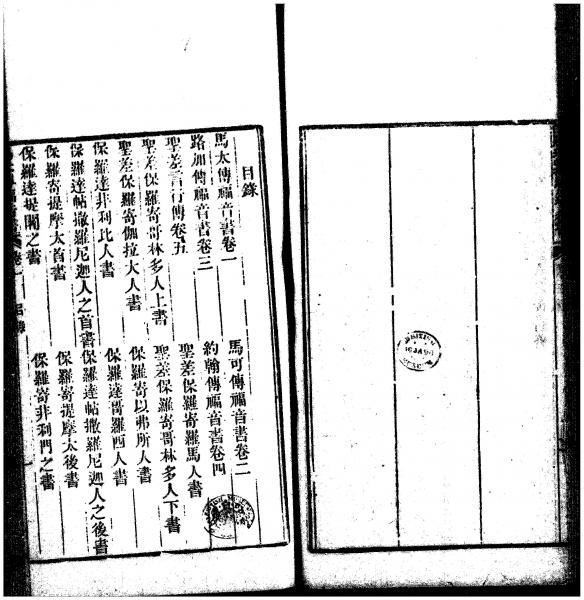 目錄
馬太傳福音書卷一 馬可傳福音書卷二
路加傳福音書卷三 約翰傳福音書卷四
聖差言行傳卷五 聖差保羅寄羅馬人書
聖差保羅寄哥林多人上書 聖差保羅寄哥林多人下書
聖差保羅寄伽拉大人書 保羅寄以弗所人書
保羅達非利比人書 保羅達哥羅西人書
保羅達帖撒羅尼迦人之首書 保羅達帖撒羅尼迦人之後書
保羅寄提摩太首書 保羅寄提摩太後書
保羅達提之書 保羅寄非利門之書